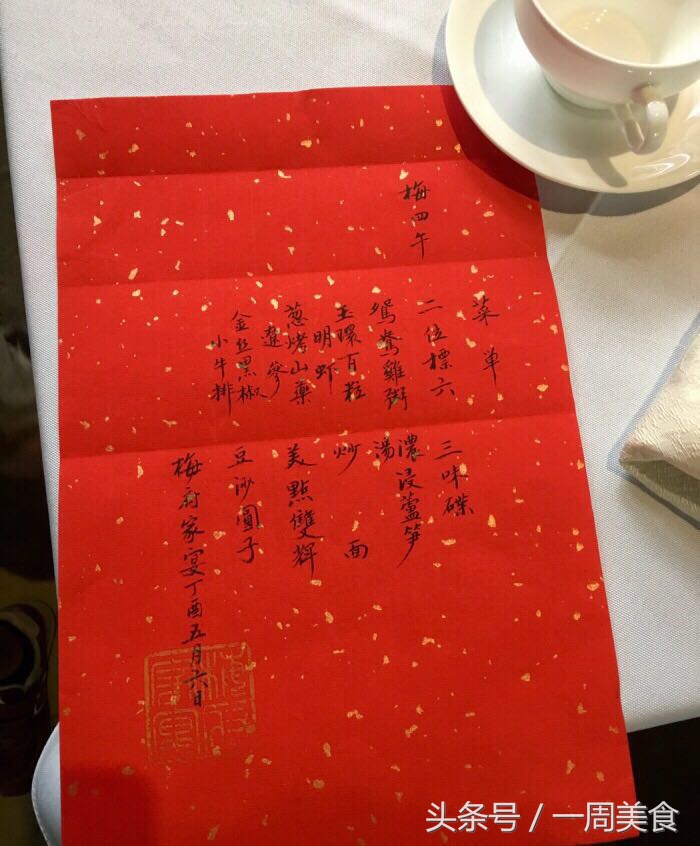 梅四午
菜单
二位標六
鴛鴦雞粥
玉環百粒
明虾
葱烤山藥
遼參
金丝黑椒
小牛排
三味碟
濃浸蘆笋
湯
炒面
美點雙輝
豆沙圓子
梅府家宴丁酉五月六日
梅府家宴
头条号 / 一周美食